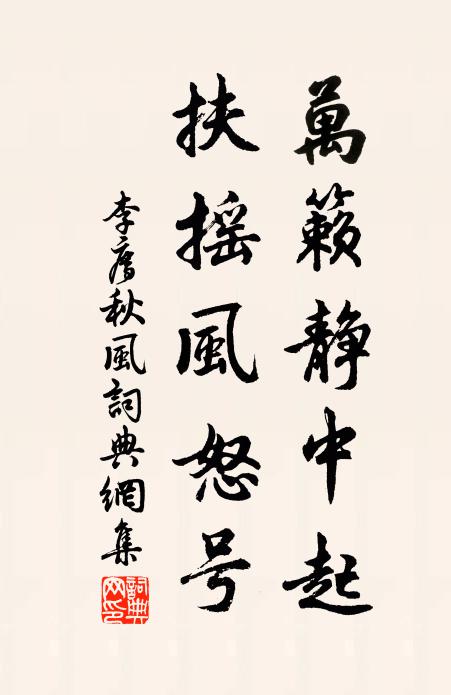 萬籟静中起
扶摇風怒号
李廌秋風詞典網集
詞典網印